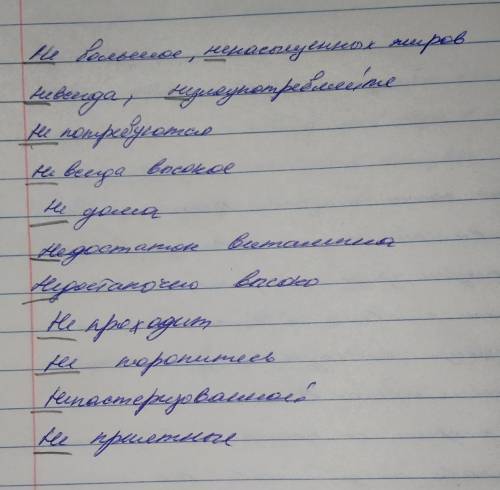 Не большое, ненасыщенных жиров
не всегда, незлоупотребляйте
Не потребуются
Не всегда высокое
Не дома
Недостаток витамина
Недостаточно высоко
Не проходит
Не торопитесь
Непастеризованной
Не приятные